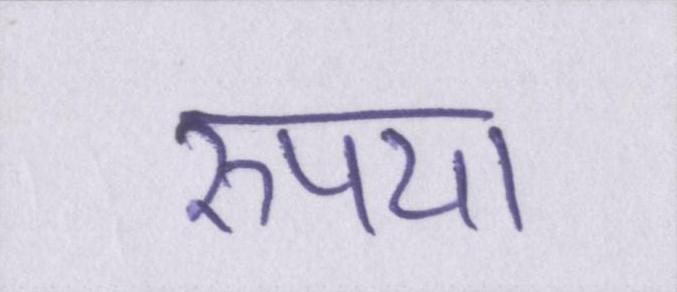 रुपया